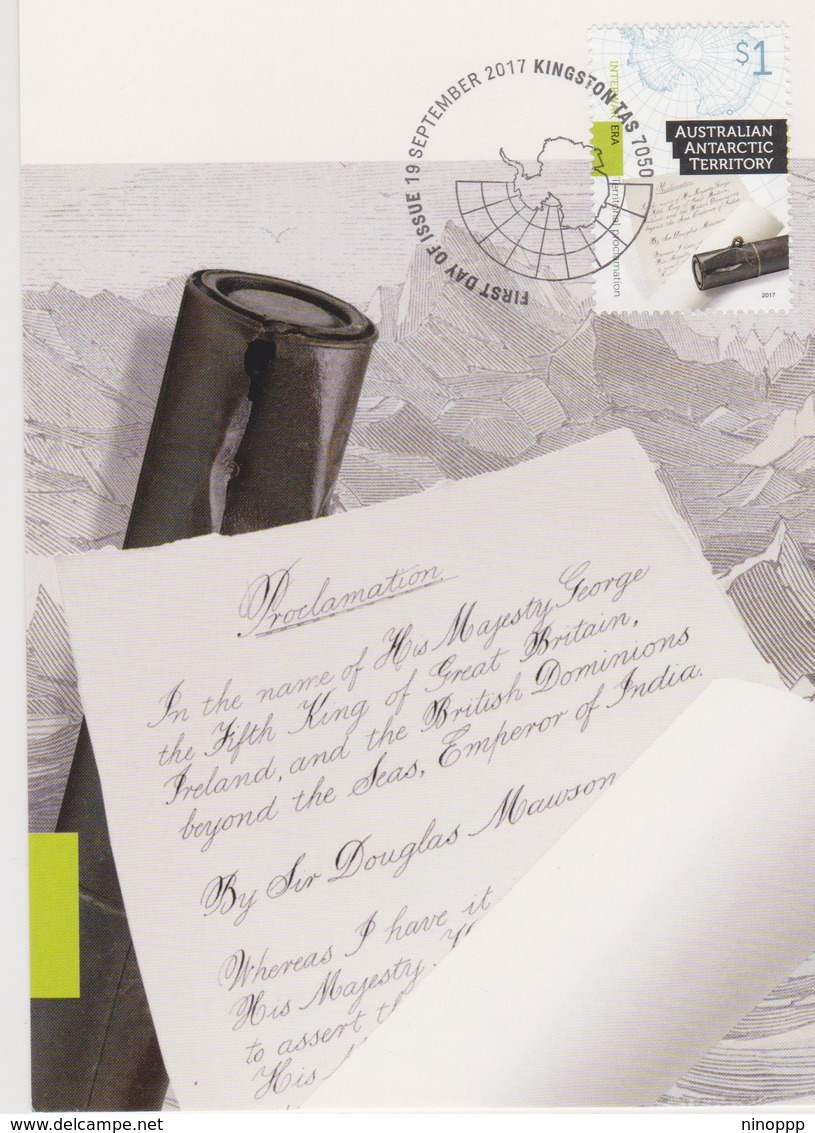 FIRST DAY OF ISSUE 19 SEPTEMBER 2017 KINGSTON TAS 7050
$1
ERA
AUSTRALIAN
ANTARCTIC
TERRITORY
Territorial proclamation
2017
Proclamation
In the name of His Majesty George
the Fifth King of Great Britain,
Ireland, and the British Dominions
beyond the Seas, Emperor of India.
By Sir Douglas Mawson
Whereas I have it
His Majesty
to assert
His
www.delcampe.net
ninoppp